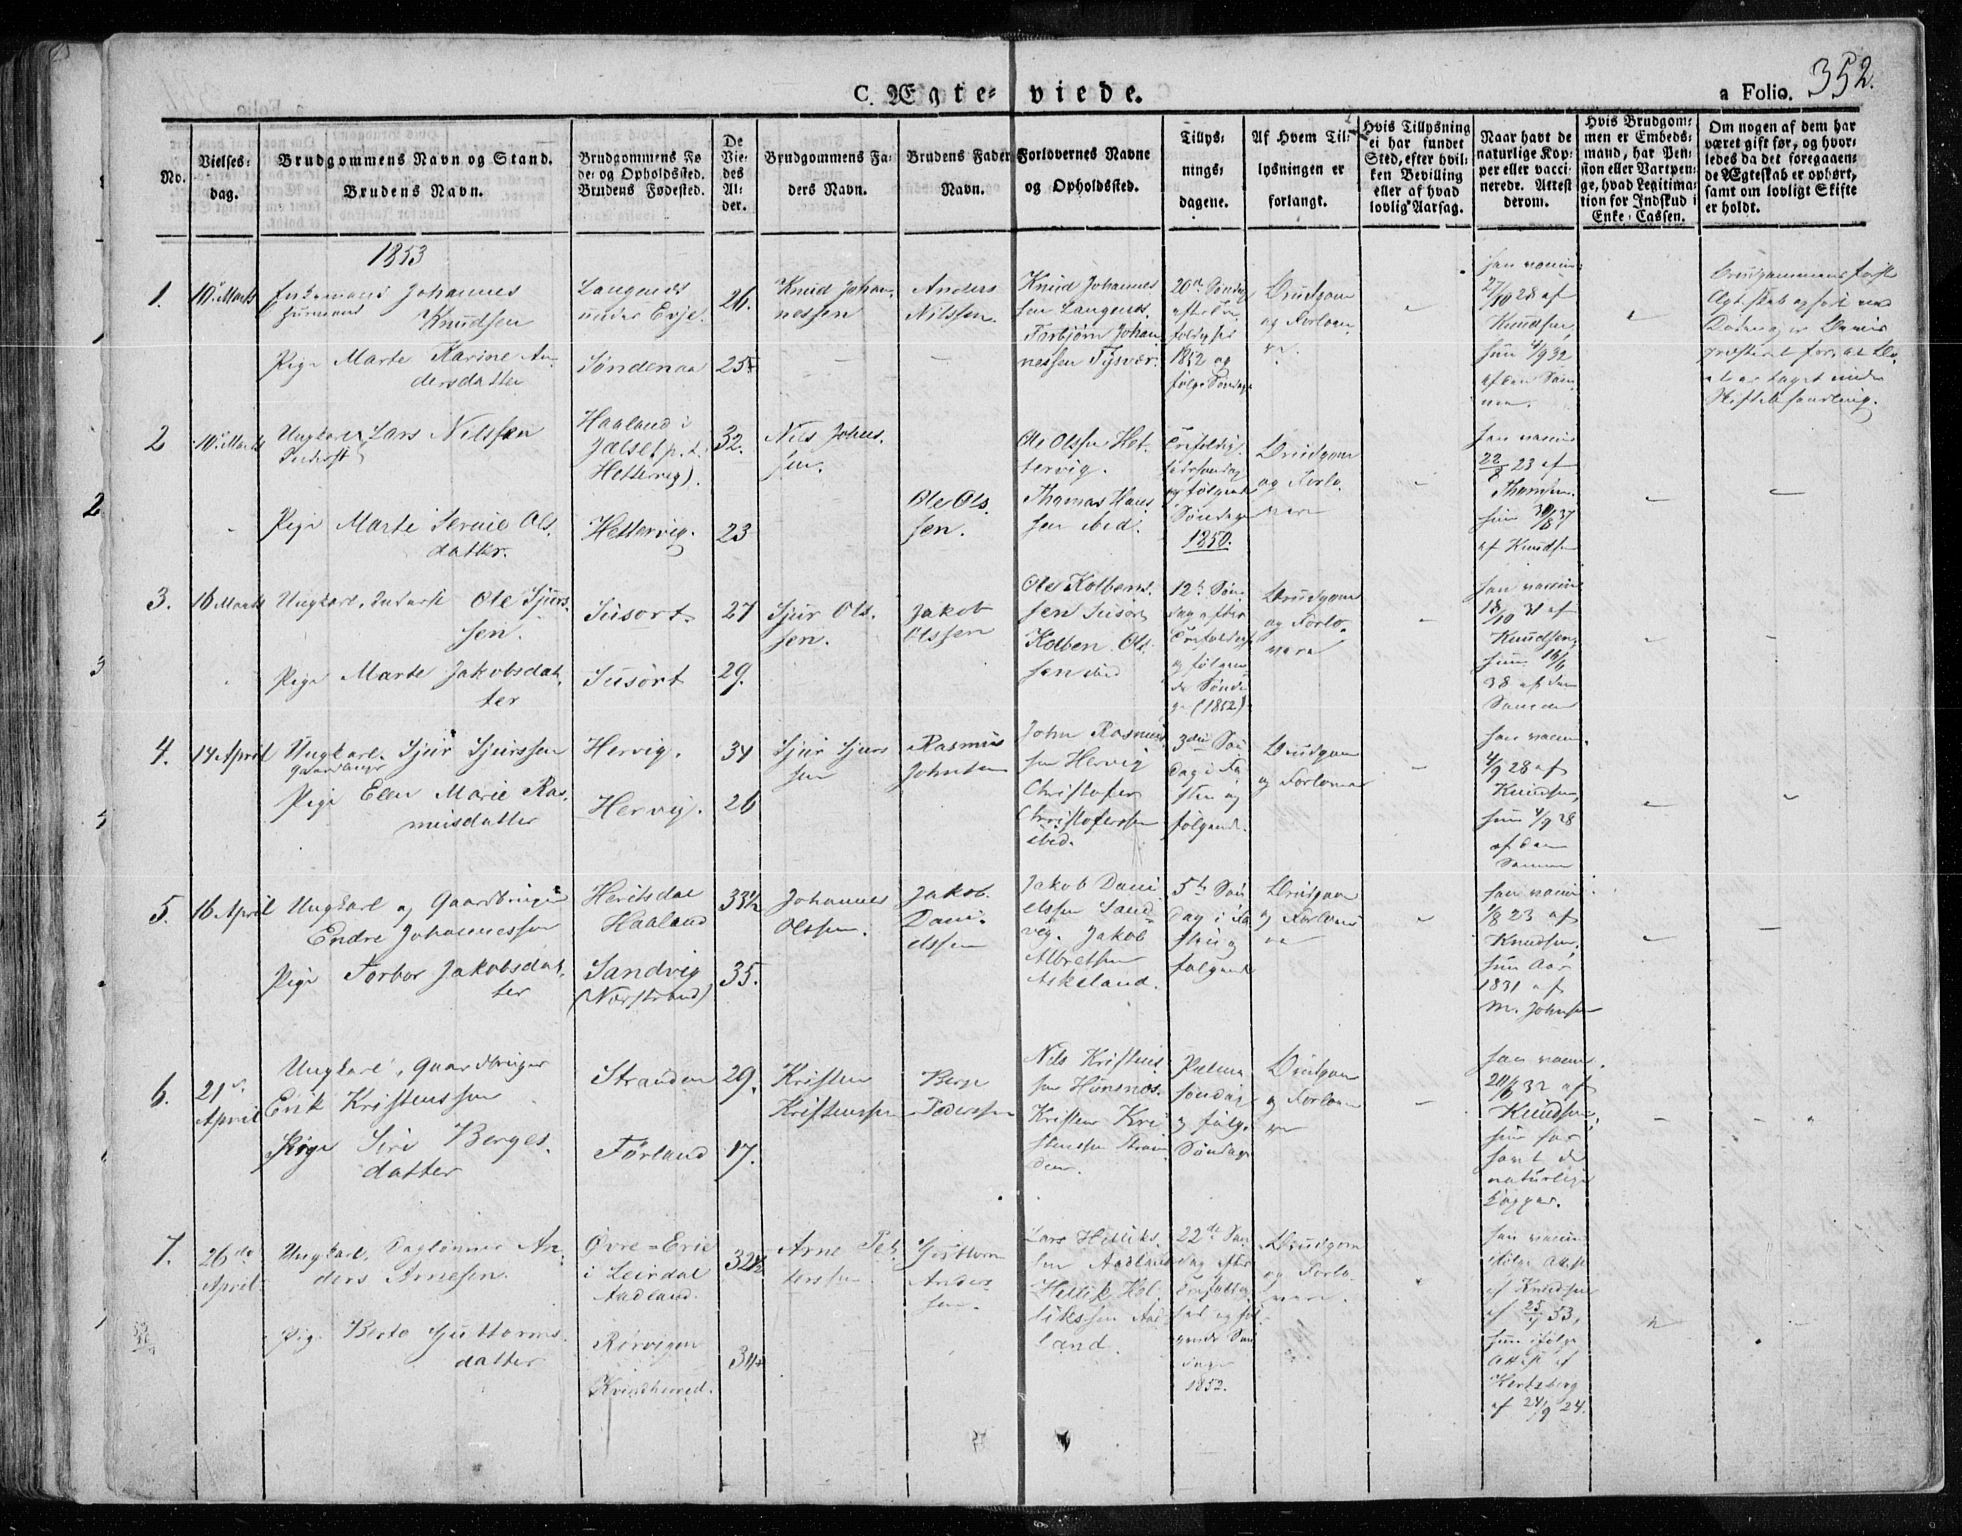 C. Ægte-viede.
a Folio. 352.
No.
Vielses-
dag.
Brudgommens Navn og Stand.
Brudens Navn.
Brudgommens Fø
de- og Opholdssted.
Brudens Fødested.
De
Vie-
des
Al-
der.
Brudgommens Fa-
ders Navn.
Brudens Fader
Navn.
Forlovernes Navne
og Opholdssted.
Tillys-
nings-
dagene.
Af Hvem Til-
lysningen er
forlangt.
Hvis Tillysning
ei har fundet
Sted, efter hvil-
ken Bevilling
eller af hvad
lovlig Aarsag.
Naar havt de
naturlige Kop-
per eller vacci-
nerede. Attest
derom.
Hvis Brudgom-
men er Embeds-
mand, har Pen-
sion eller Vartpen-
ge, hvad Legitima-
tion for Indskud i
Enke-Cassen.
Om nogen af dem har
været gift før, og hvor-
ledes da det foregaaen-
de Ægteskab er ophørt,
samt om lovligt Skifte
er holdt.
1853
1.
10. Marts
Enkemand Johannes
Knudsen
Langenes
under Erje.
26.
Knud Johan-
nessen
Anders
Nilssen.
Knud Johannes
sen Langenes.
Torbjørn Johan
nessen Tysvær.
20de Søndag
1852 og
følge Søndage
Brudgom
og Forlove
re.
han vaccin
27/10 28 af
Knudsen,
hun 4/9 32
af den Sam
me.
Brudgommens første
Pige Marte Karine An
dersdatter
Søndenaa
25
2
10. Marts
Ungkarl Lars Nilssen
Inderst
Haaland i
Jælse p. t.
Hettervig).
32.
Nils Johns.
sen.
Ole Olssen Het
tervig.
Thomas Hans
sen ibid.
og følgende
Søndage
1850.
Brudgom
og Forlo
vere
han vaccin
22/8 23 af
Thomsen.
hun 30/8 37
af Knudsen
Pige Marte Serine Ols
datter.
Hettervig.
23
Ole Ols.
sen.
3.
16 Marts
Ungkarl, Inderst Ole Sjurs.
sen.
Susort.
27
Sjur Ols.
sen.
Jakob
Olssen
Ole Kolbens.
sen Susort
Kolben Ols
sen ibid
12te Søn
dag efter
og følgen
de Sønda
ge (1852)
Brudgom
og Forlo
vere
han vaccin
18/10 31 af
Knudsen,
hun 16/6
38 af den
Samme
Pige Marte Jakobsdat
ter
Susort
29.
4.
14 April
Ungkarl. Sjur Sjurssen
Gaardbruger
Hervig.
34
Sjur Sjurs
sen
Rasmus
Johnsen
John Rasmus
sen Hervig
Christofer
Christofersen
ibid.
3die Søn
dag i Fa
sten og
følgende.
Brudgom
og Forlovere
han vaccin.
4/9 28 af
Knudsen,
hun 4/9 28
af den
Samme
Pige Elen Marie Ras
musdatter
Hervig.
26
5.
16 April
Ungkarl og Gaardbruger
Endre Johannessen
Haaland
33½
Johannes
Olssen.
Jakob
Dani-
elssen
Jakob Dani
elssen Sand
vig. Jakob
Albretsen
Askeland.
5te Søn
dag i Fa
sten og
følgende
Brudgom
og Forlove
re
han vaccin.
1/8 23 af
Knudsen,
hun Aar
1831 af
M. Johnsen
Pige Torbor Jakobsdat
ter
Sandvig
(Nærstrand)
35.
6.
21de
April
Ungkarl, Gaardbruger
Erik Kristenssen
Stranden
29.
Kristen
Kristenssen
Berge
Pederssen
Nils Kristens
sen Hunsnæs.
Kristen Kri
stenssen Stran
den.
Palme
søndag
og følg.
Søndage
Brudgom
og Forlove
re
han vaccin.
20/6 32 af
Knudsen,
hun har
havt de
naturlige
Kopper.
Pige Siri Berges.
datter
Førland
17.
7.
26de
April
Ungkarl, Daglønner An-
ders Arnesen.
Øvre-Erie
i Leirdal
Aadland.
32½
Arne Pet
terssen
Guttorm
Anders
sen.
Lars Helliks.
sen Aadland
Hellik Hel
likssen Aad
land.
22de Søn
dag efter
gende Søn
dage
1852.
Brudgom
og Forlo
vere.
han vaccin
ifølge Attest
af Knudsen
af 25/4 53,
hun ifølge
Attest af
Hertzberg
af 24/9 24.
Pige Berte Guttorms.
datter
Rørvigen
Kvindherred.
34